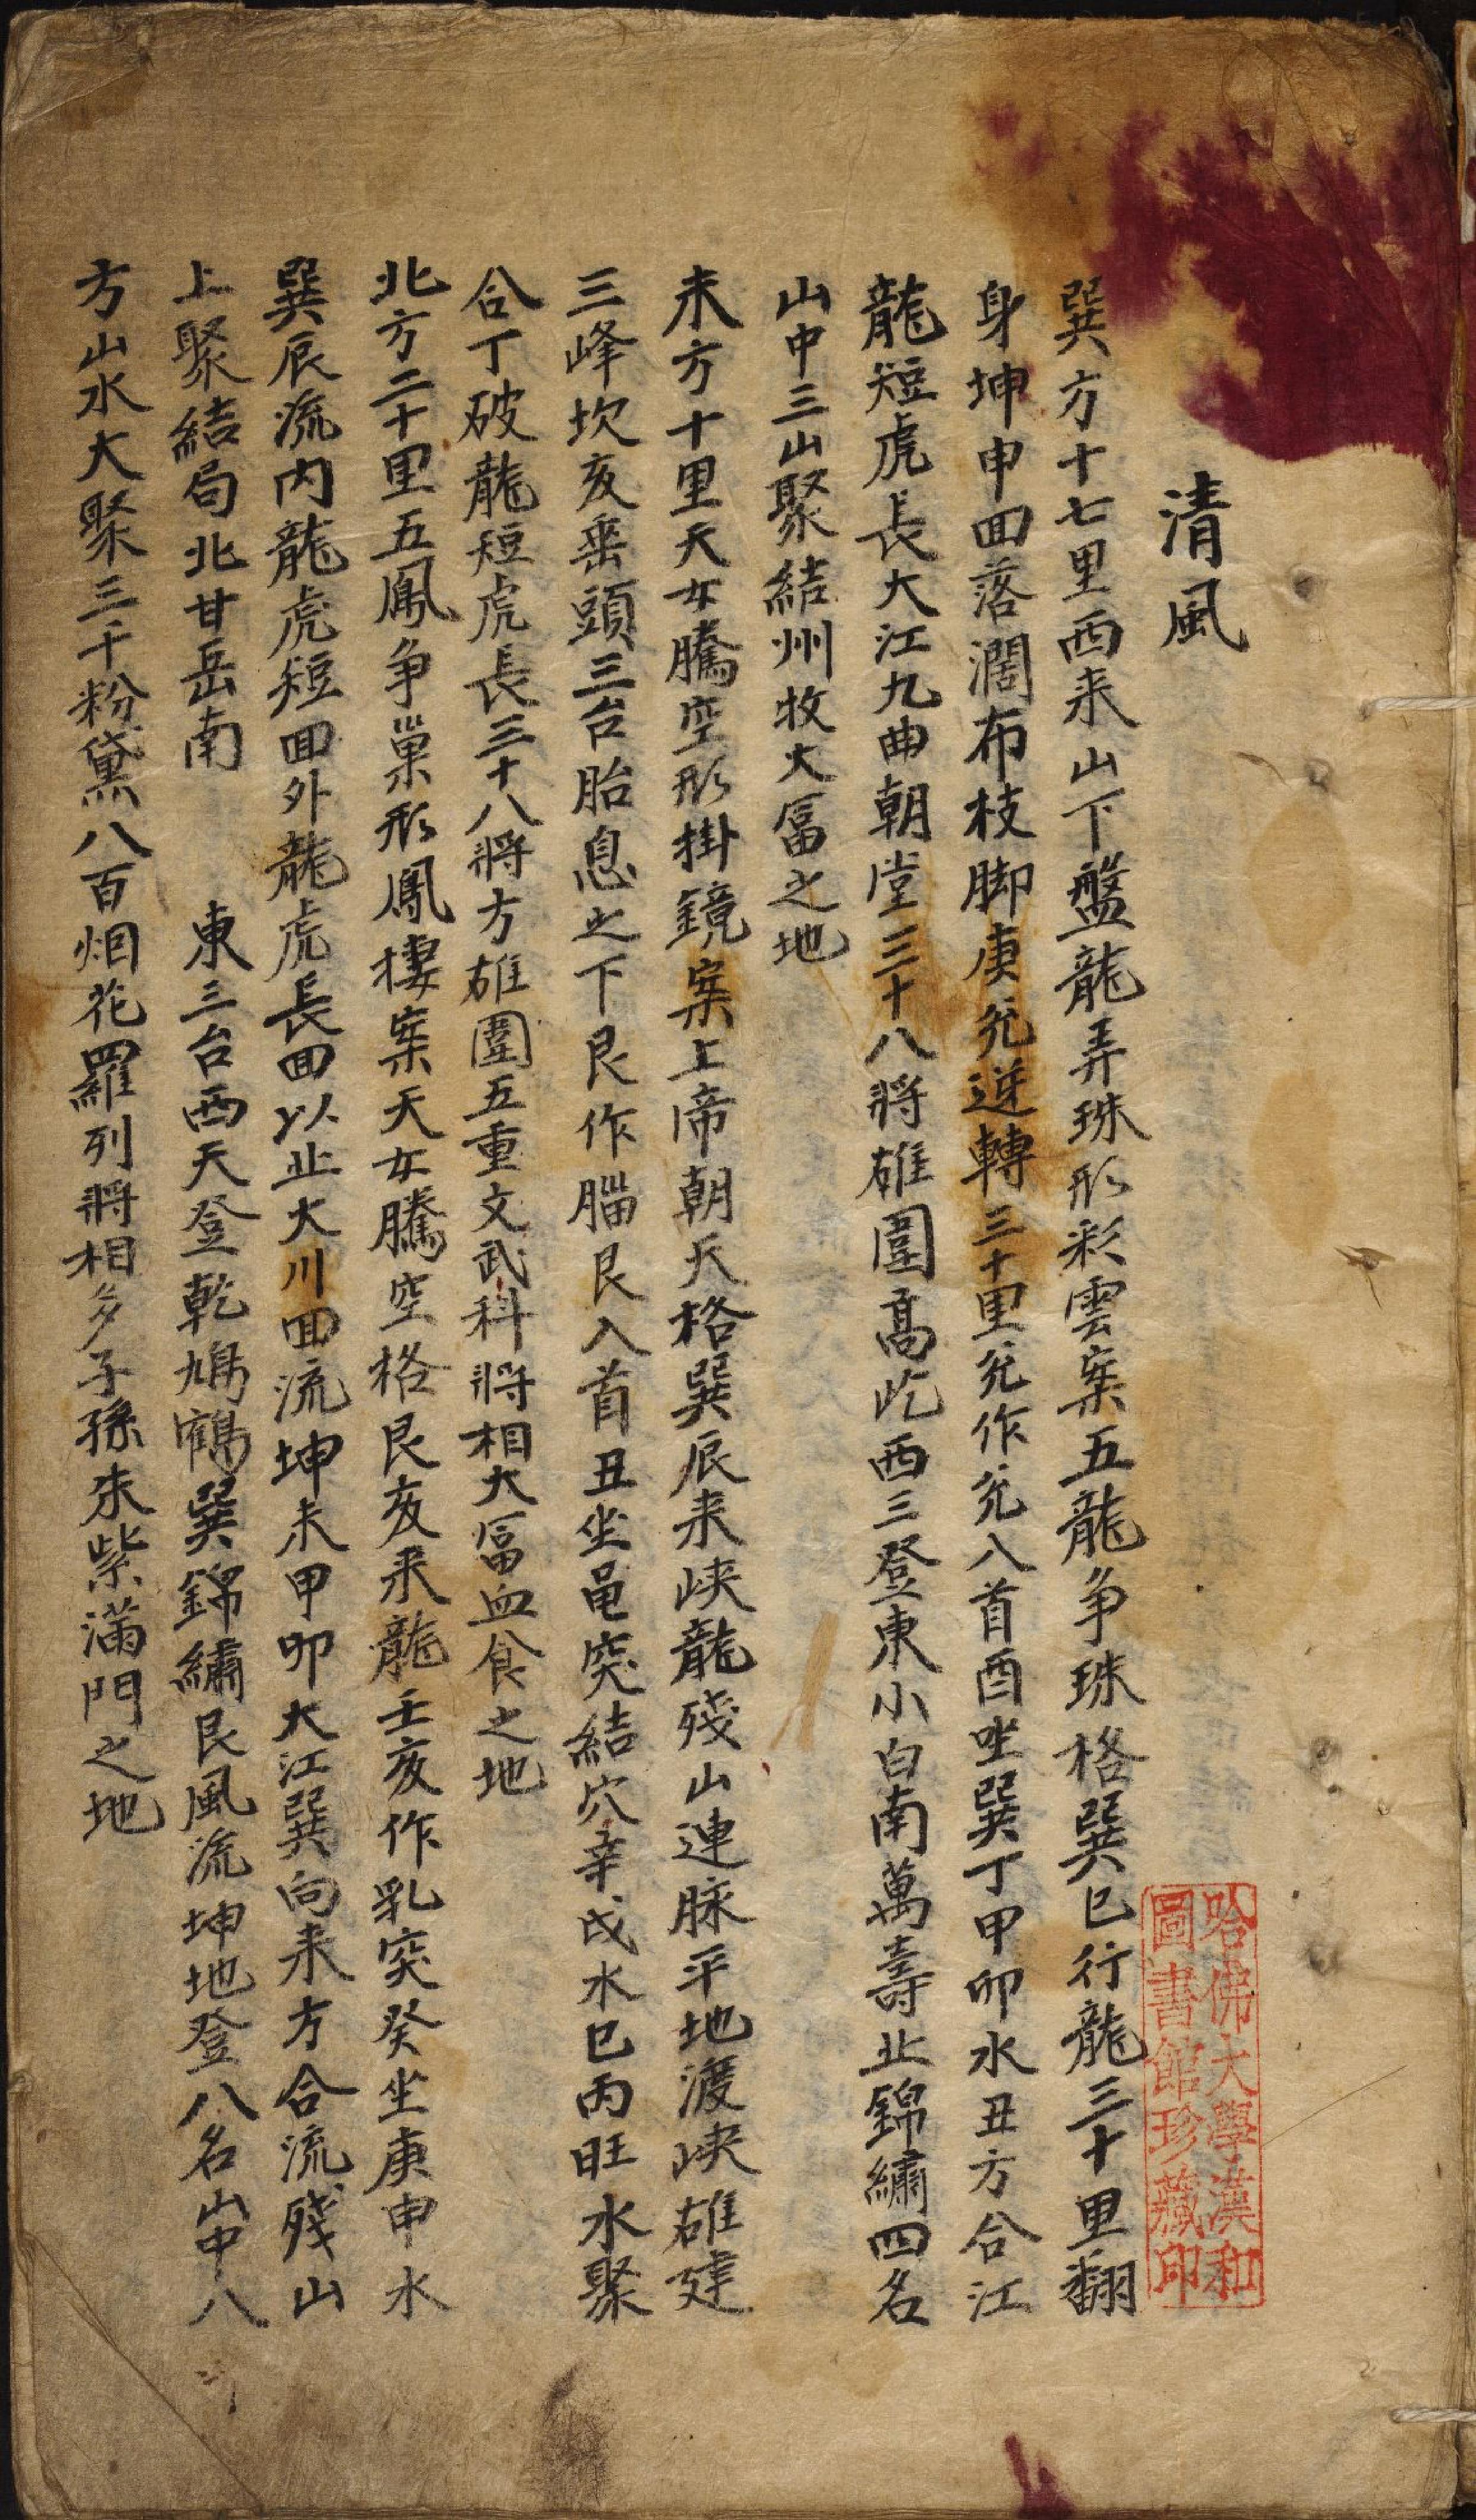 清風
巽方十七里西来山下盤龍弄珠形彩雲案五龍争珠格巽巳行龍三十里翻
身坤申回落濶布枝脚庚兊逆轉三十里兊作兊入首酉坐巽丁甲卯水丑方合江
龍短虎長大江九曲朝堂三十八將雄圍髙屹西三登東小白南萬壽北錦繡四名
山中三山聚結州牧大富之地
未方十里天女騰空形掛鏡案上帝朝天格巽辰来峽龍殘山連脉平地渡峽雄建
三峰坎亥垂頭三台胎息之下艮作腦艮入首丑坐黾突結穴辛戌水巳丙旺水聚
合丁破龍短虎長三十八將方雄圍五重文武科將相大富血食之地
北方二十里五鳳争巢形鳳樓案天女騰空格艮亥来龍壬亥作乳突癸坐庚申水
巽辰流内龍虎短回外龍虎長回以止大川回流坤未甲卯大江巽向来方合流殘山
上聚結局北甘岳南 東三台西天登乾鳩鶴巽錦繡艮風流坤地登八名山中八
方山水大聚三千粉黛八百烟花羅列將相多子孫朱紫滿門之地
哈佛大學漢和
圖書館珍藏印